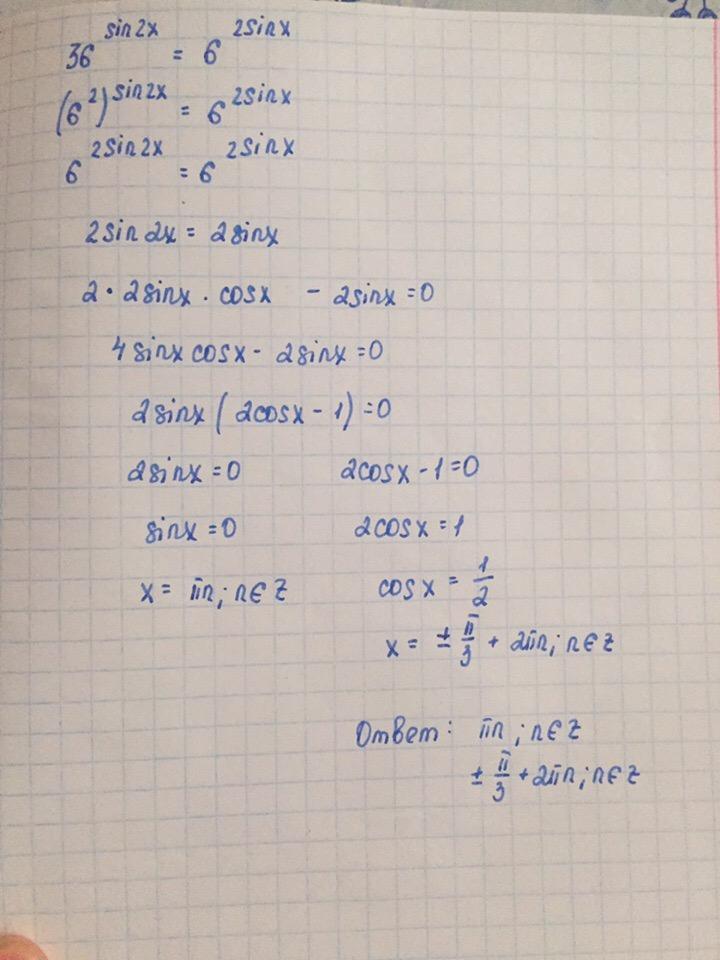 36^sin2x = 6^2sinx
(6^2)^sin2x = 6^2sinx
6^2sin2x = 6^2sinx
2sin2x = 2sinx
2·2sinx·cosx - 2sinx=0
4sinxcosx - 2sinx=0
2sinx(2cosx-1)=0
2sinx=0 2cosx-1=0
sinx=0 2cosx=1
x= πn; n∈Z cosx = 1/2
x= ±π/3 + 2πn; n∈Z
Ответ: πn; n∈Z
±π/3+2πn; n∈Z